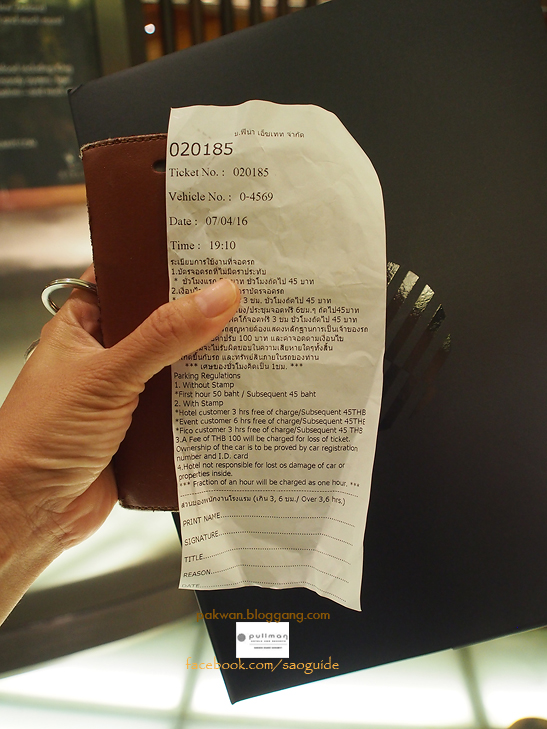 บ.ฟีน่า เอ็ซเทท จำกัด
020185
Ticket No. : 020185
Vehicle No. : 0-4569
Date : 07/04/16
Time : 19:10
ระเบียบการใช้งานที่จอดรถ
1.บัตรจอดรถที่ไม่มีตราประทับ
* ชั่วโมงแรก บาท ชั่วโมงถัดไป 45 บาท
3 ชม. ชั่วโมงถัดไป 45 บาท
ประชุมจอดฟรี 6ชม.ๆ ถัดไป45บาท
จอดฟรี 3 ชม ชั่วโมงถัดไป 45 บาท
ต้องแสดงหลักฐานการเป็นเจ้าของรถ
100 บาท และค่าจอดตามเงื่อนไข
จะไม่รับผิดชอบในความเสียหายใดๆทั้งสิ้น
กับรถ และทรัพย์สินภายในรถของท่าน
*** เศษของชั่วโมงคิดเป็น 1ชม. ***
Parking Regulations
1. Without Stamp
*First hour 50 baht / Subsequent 45 baht
2. With Stamp
*Hotel customer 3 hrs free of charge/Subsequent 45THB
*Event customer 6 hrs free of charge/Subsequent 45THB
*Fico customer 3 hrs free of charge/Subsequent 45 THB
3.A Fee of THB 100 will be charged for loss of ticket.
Ownership of the car is to be proved by car registration
number and I.D. card
4.Hotel not responsible for lost os damage of car or
properties inside.
*** Fraction of an hour will be charged as one hour. ***
ส่วนของพนักงานโรงแรม (เกิน 3, 6 ชม./ Over 3,6 hrs.)
PRINT NAME
SIGNATURE
TITLE
REASON
DATE
oakwan.bloggang.com
pullman
facebook.com/saoguide